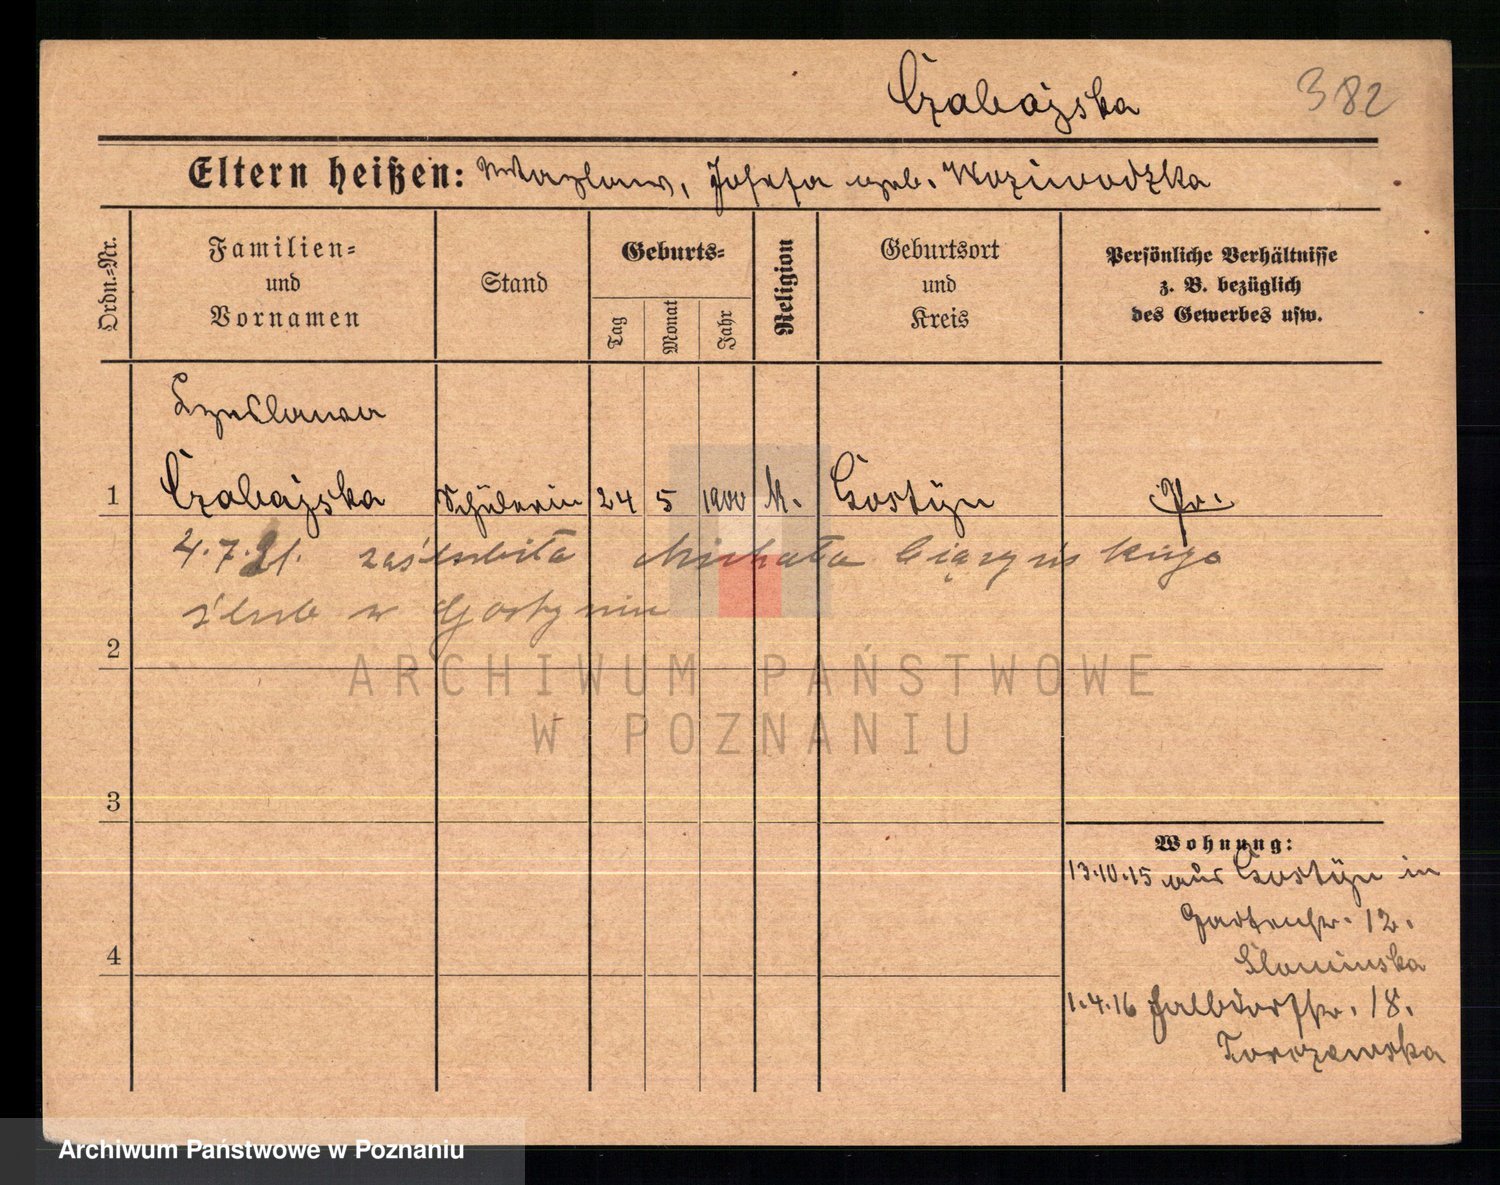 Czabajska 382
Eltern heißen: Wazlaw, Josefa geb. Woziwodzka
Ordn.=Nr.
Familien=
und
Vornamen
Stand
Geburts=
Tag
Monat
Jahr
Religion
Geburtsort
und
Kreis
Persönliche Verhältnisse
z. B. bezüglich
des Gewerbes usw.
Czeslawa
1 Czabajska Schülerin 24 5 1900 k. Gostyn Pr.
4.7.21. zaślubiła Michała
ślub w Gostyniu
2
ARCHIWUM PAŃSTWOWE
W POZNANIU
3
4
Wohnung:
13.10.15 aus Gostyn in
Gartenstr. 12.
Slominska
1.4.16 Halbdorfstr. 18.
Torczewska
Archiwum Państwowe w Poznaniu